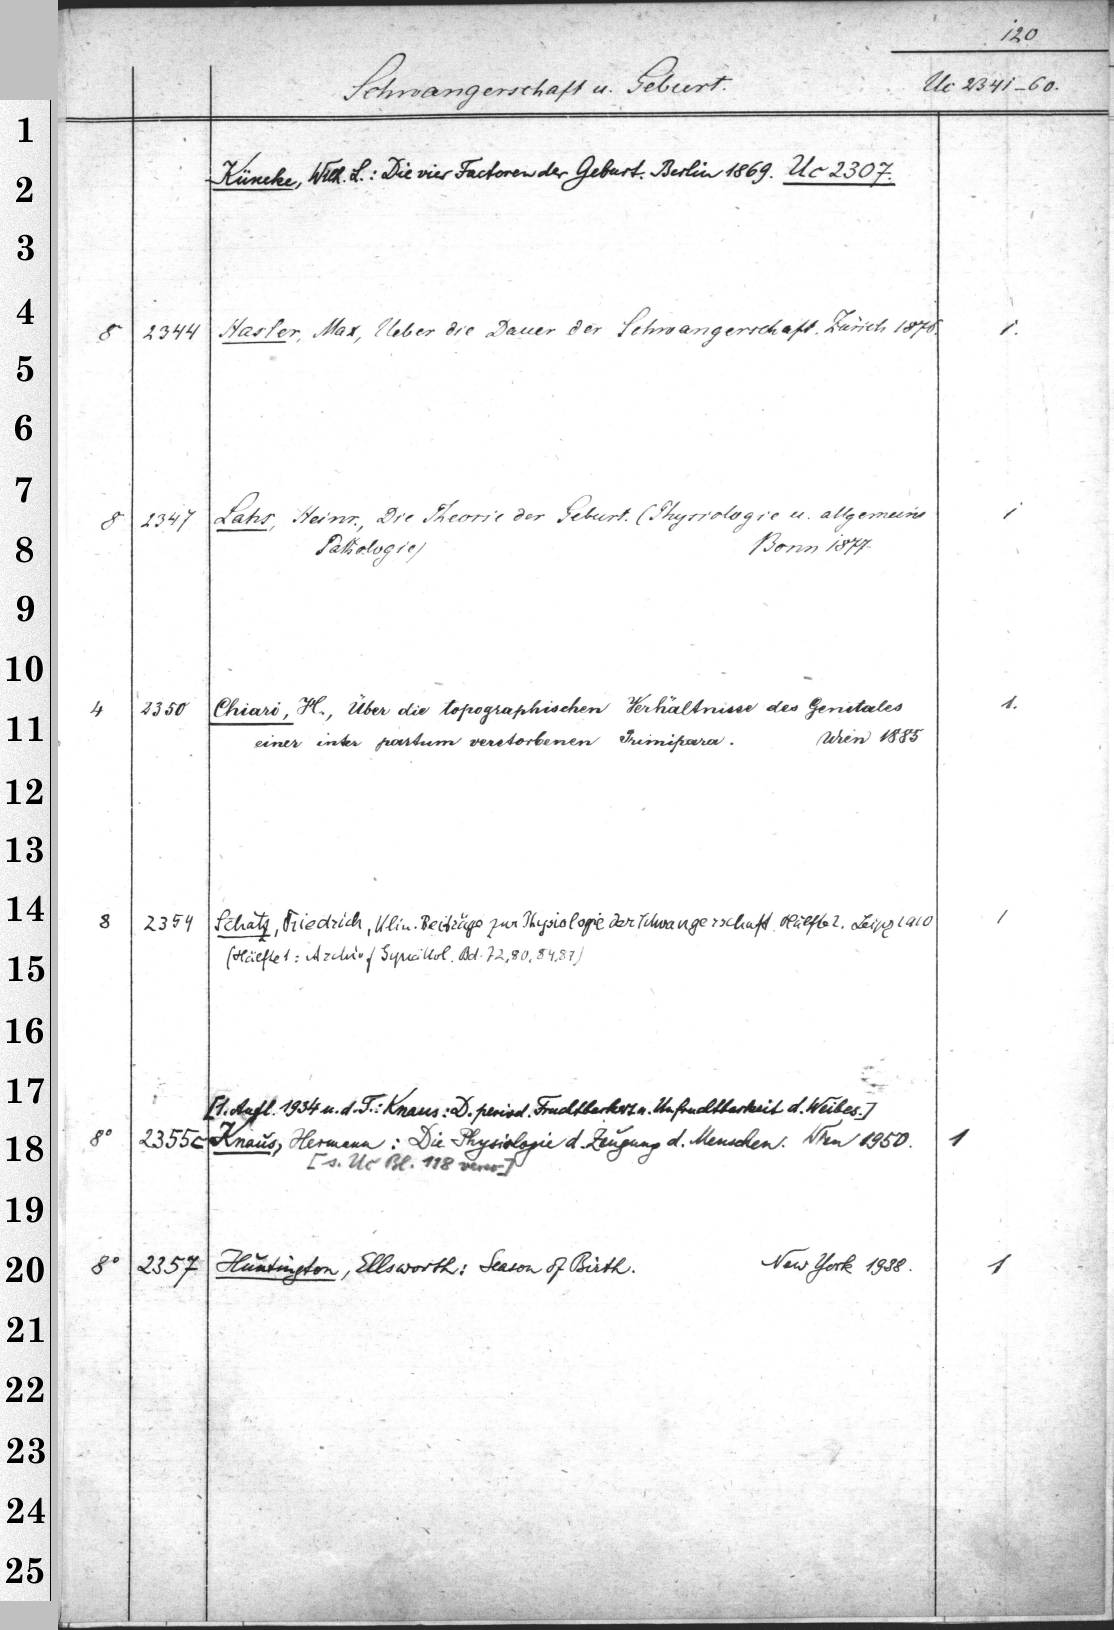 120
Schwangerschaft u. Geburt.
Uc 2341-60.
1
2 Küneke, Wilh. L.: Die vier Factoren der Geburt. Berlin 1869. Uc 2307.
3
4 8 2344 Hasler, Max, Ueber die Dauer der Schwangerschaft. Zürich 1876. 1.
5
6
7 8 2347 Lahs, Heinr., Die Theorie der Geburt. (Physiologie u. allgemeine 1
8 Pathologie) Bonn 1877.
9
10
11 4 2350 Chiari, H., Über die topographischen Verhältnisse des Genitales 1.
einer inter partum verstorbenen Primipara. Wien 1885
12
13
14 8 2354 Schatz, Friedrich, Klin. Beiträge zur Physiologie der Schwangerschaft. Hälfte 2. Leipz 1910 1
15 (Hälfte 1: Archiv f Gynäkol. Bd. 72, 80, 84, 87)
16
17 [1. Aufl. 1934 u. d. T.: Knaus: D. period. Fruchtbarkeit u. Unfruchtbarkeit d. Weibes.]
18 8° 2355c Knaus, Hermann: Die Physiologie d. Zeugung d. Menschen. Wien 1950. 1
[s. Uc Bl. 118 verso]
19
20 8° 2357 Huntington, Ellsworth: Season of Birth. New York 1938. 1
21
22
23
24
25